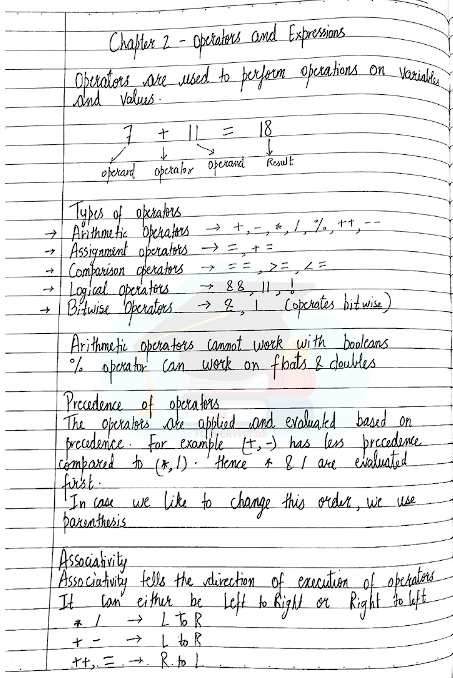 Chapter 2 - Operators and Expressions
Operators are used to perform operations on variables
and values.
7 + 11 = 18
operand operator operand Result
Types of operators
→ Arithmetic Operators → +, -, *, /, %, ++, --
→ Assignment operators → =, +=
→ Comparison operators → ==, >=, <=
→ Logical operators → &&, ||, !
→ Bitwise Operators → &, | (operates bitwise)
Arithmetic operators cannot work with booleans
% operator can work on floats & doubles
Precedence of operators
The operators are applied and evaluated based on
precedence. For example (+, -) has less precedence
compared to (*, /). Hence * & / are evaluated
first.
In case we like to change this order, we use
parenthesis
Associativity
Associativity tells the direction of execution of operators
It can either be Left to Right or Right to left
* / → L to R
+ - → L to R
++, = → R to L